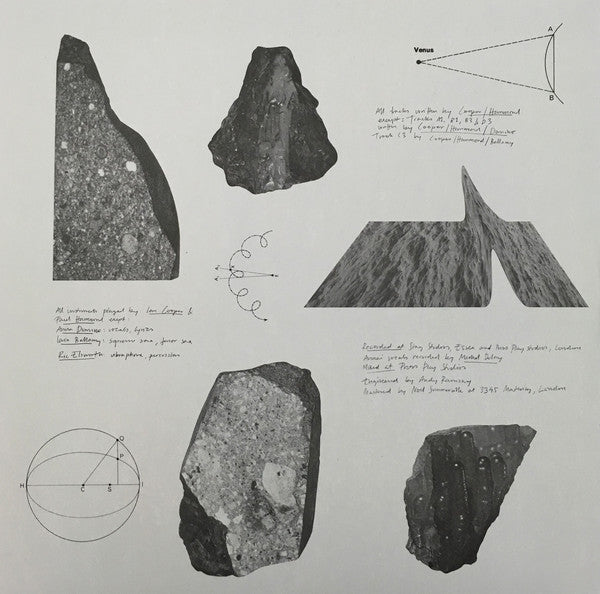 Venus
A
B
All tracks written by Cooper / Hammond
except: Tracks A1, B1, B3 & D3
written by Cooper / Hammond / Domino
Track C3 by Cooper / Hammond / Bellamy
All instruments played by Ian Cooper &
Paul Hammond except:
Anna Domino: vocals, lyrics
Iain Bellamy: soprano sax, tenor sax
Ric Elsworth: vibraphone, percussion
Recorded at Studios, and Press Play studios, London
Anna's vocals recorded by Michel Delory
Mixed at Press Play Studios
Engineered by Andy Ramsay
Mastered by Noel Summerville at 3345 Mastering, London
Q
P
H
C
S
I